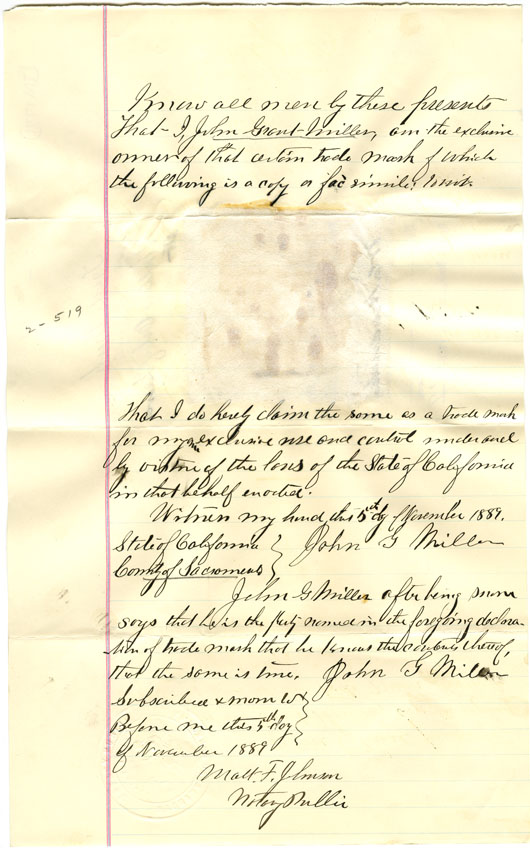 Know all men by these presents
That I, John Grant Miller, am the exclusive
owner of that certain trade mark of which
the following is a copy or fac simile, towit.
2-519
That I do hereby claim the same as a trade mark
for my own exclusive use and control under and
by virtue of the laws of the State of California
in that behalf enacted.
Witness my hand this 5th day of November 1889.
State of California } John G Miller
County of Sacramento }
John G Miller after being sworn
says that he is the party named in the foregoing declara-
tion of trade mark that he knows the contents thereof,
that the same is true. John G Miller
Subscribed & sworn to }
Before me this 5th day }
of November 1889
Matt. F. Johnson
Notary Public